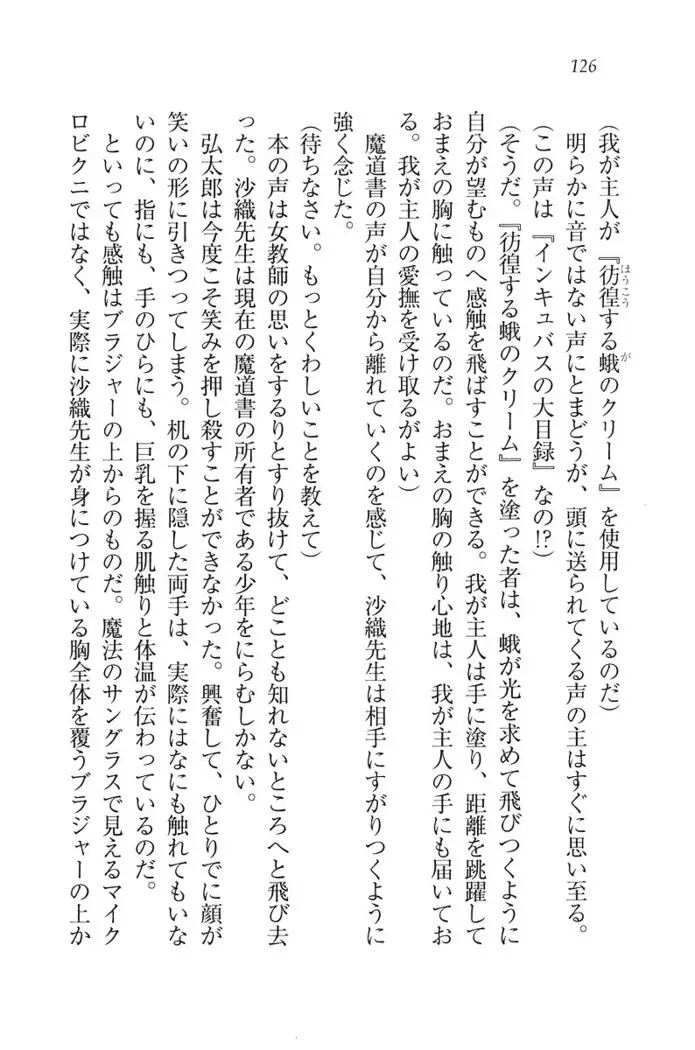 126
(我が主人が『彷徨する蛾のクリーム』を使用しているのだ)
明らかに音ではない声にとまどうが、頭に送られてくる声の主はすぐに思い至る。
(この声は『インキュバスの大目録』なの!?)
(そうだ。『彷徨する蛾のクリーム』を塗った者は、蛾が光を求めて飛びつくように
自分が望むものへ感触を飛ばすことができる。我が主人は手に塗り、距離を跳躍して
おまえの胸に触っているのだ。おまえの胸の触り心地は、我が主人の手にも届いてお
る。我が主人の愛撫を受け取るがよい)
魔道書の声が自分から離れていくのを感じて、沙織先生は相手にすがりつくように
強く念じた。
(待ちなさい。もっとくわしいことを教えて)
本の声は女教師の思いをするりとすり抜けて、どことも知れないところへと飛び去
った。沙織先生は現在の魔道書の所有者である少年をにらむしかない。
弘太郎は今度こそ笑みを押し殺すことができなかった。興奮して、ひとりでに顔が
笑いの形に引きつってしまう。机の下に隠した両手は、実際にはなにも触れてもいな
いのに、指にも、手のひらにも、巨乳を握る肌触りと体温が伝わっているのだ。
といっても感触はブラジャーの上からのものだ。魔法のサングラスで見えるマイク
ロビクニではなく、実際に沙織先生が身につけている胸全体を覆うブラジャーの上か